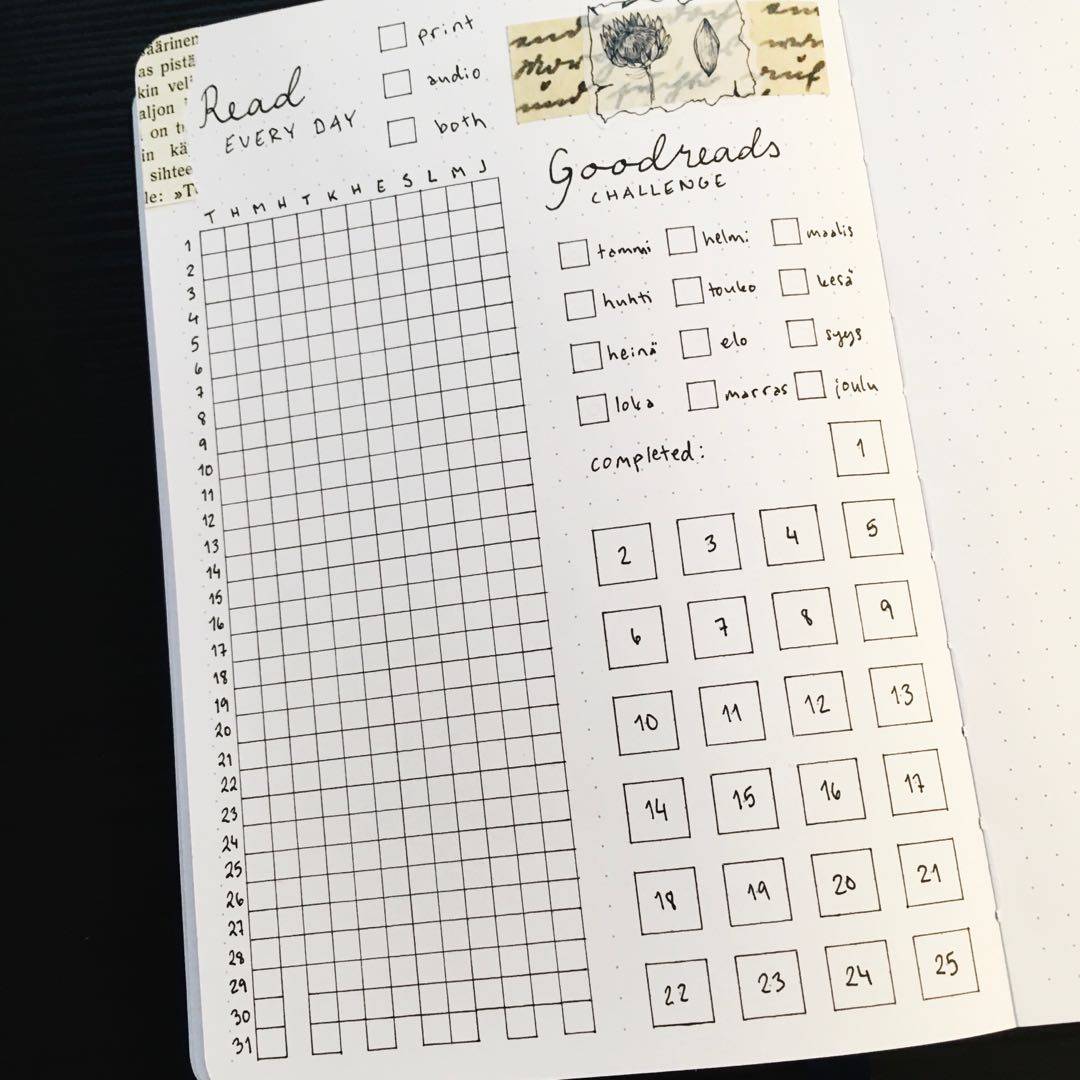 äärinen
as pistä
kin vel
aljon
on t
in kä
sihtee
le: »T
Read
EVERY DAY
print
audio
both
T H M H T K H E S L M J
1
2
3
4
5
6
7
8
9
10
11
12
13
14
15
16
17
18
19
20
21
22
23
24
25
26
27
28
29
30
31
und
ruf
Goodreads
CHALLENGE
tammi helmi maalis
huhti touko kesä
heinä elo syys
loka marras joulu
completed: 1
2 3 4 5
6 7 8 9
10 11 12 13
14 15 16 17
18 19 20 21
22 23 24 25